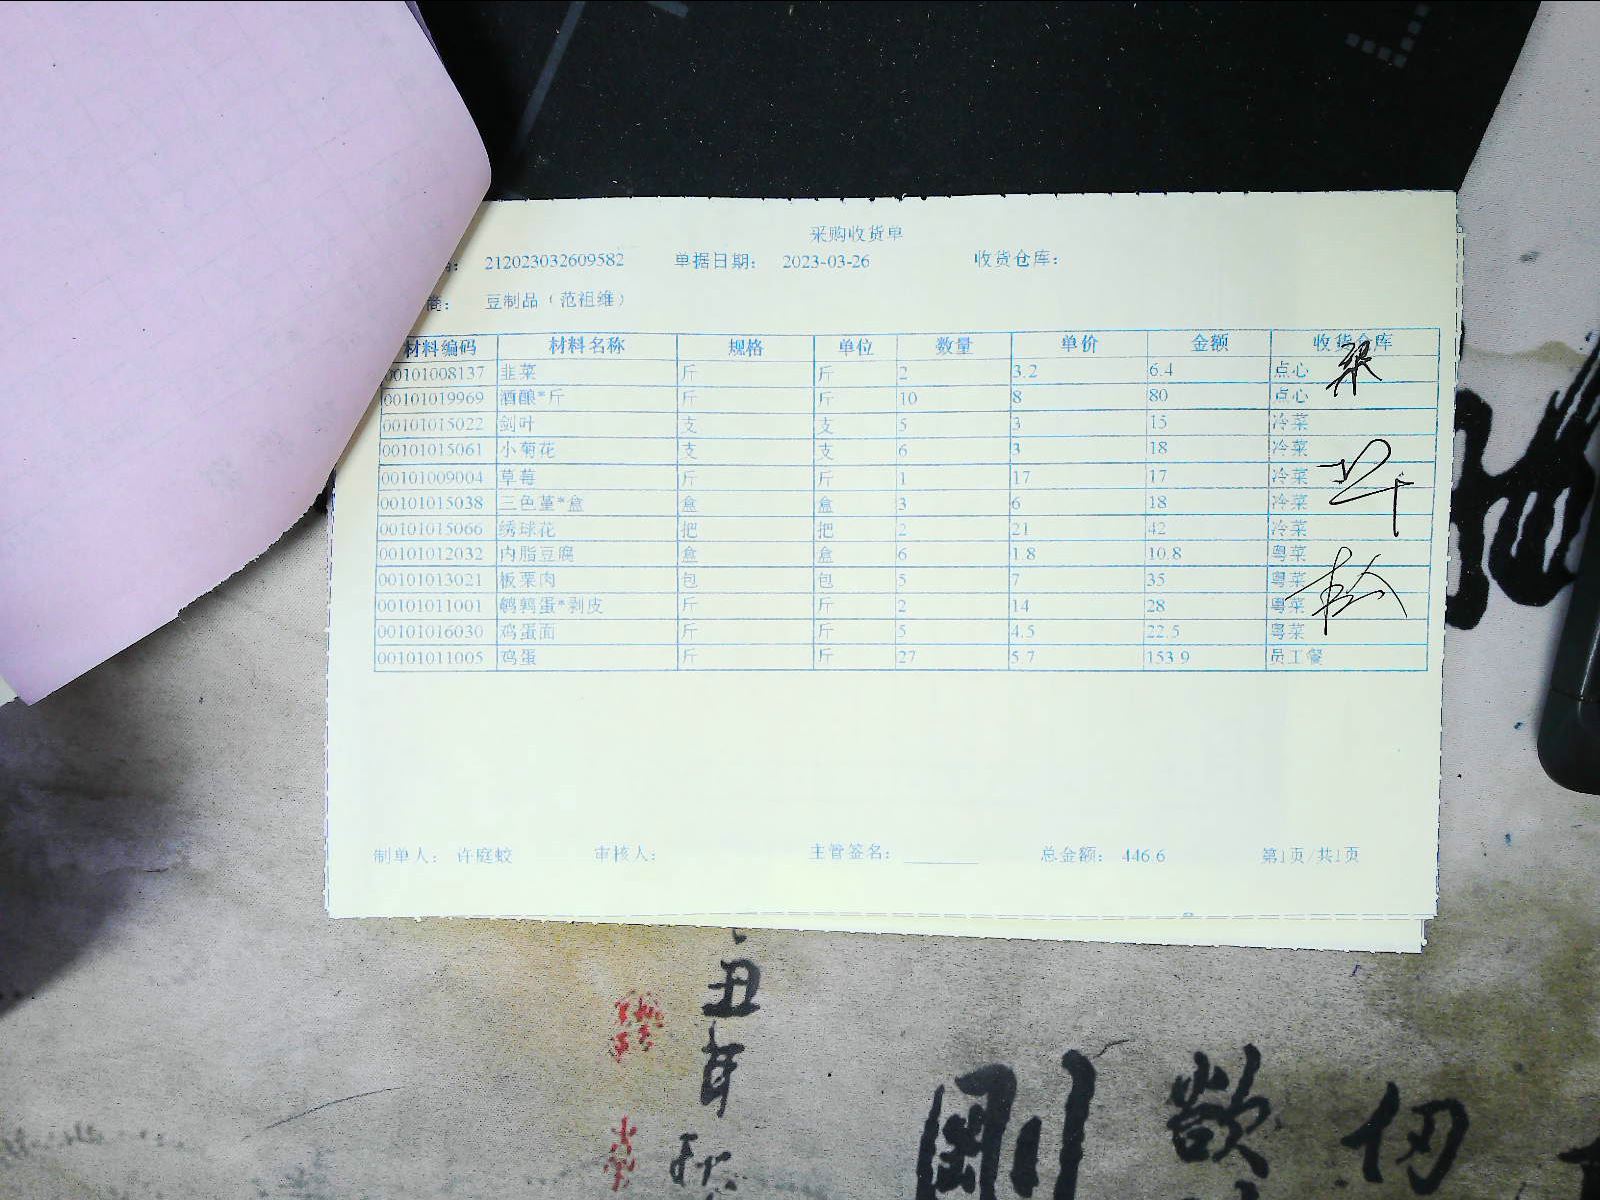 采购收货单
212023032609582 单据日期： 2023-03-26 收货仓库：
商： 豆制品（范祖维）
材料编码 材料名称 规格 单位 数量 单价 金额 收货仓库
00101008137 韭菜 斤 斤 2 3.2 6.4 点心
00101019969 酒酿*斤 斤 斤 10 8 80 点心
00101015022 剑叶 支 支 5 3 15 冷菜
00101015061 小菊花 支 支 6 3 18 冷菜
00101009004 草莓 斤 斤 1 17 17 冷菜
00101015038 三色堇*盒 盒 盒 3 6 18 冷菜
00101015066 绣球花 把 把 2 21 42 冷菜
00101012032 内脂豆腐 盒 盒 6 1.8 10.8 粤菜
00101013021 板栗肉 包 包 5 7 35 粤菜
00101011001 鹌鹑蛋*剥皮 斤 斤 2 14 28 粤菜
00101016030 鸡蛋面 斤 斤 5 4.5 22.5 粤菜
00101011005 鸡蛋 斤 斤 27 5.7 153.9 员工餐
制单人： 许庭蛟 审核人： 主管签名： 总金额： 446.6 第1页/共1页
丑年
秋
剛
欲